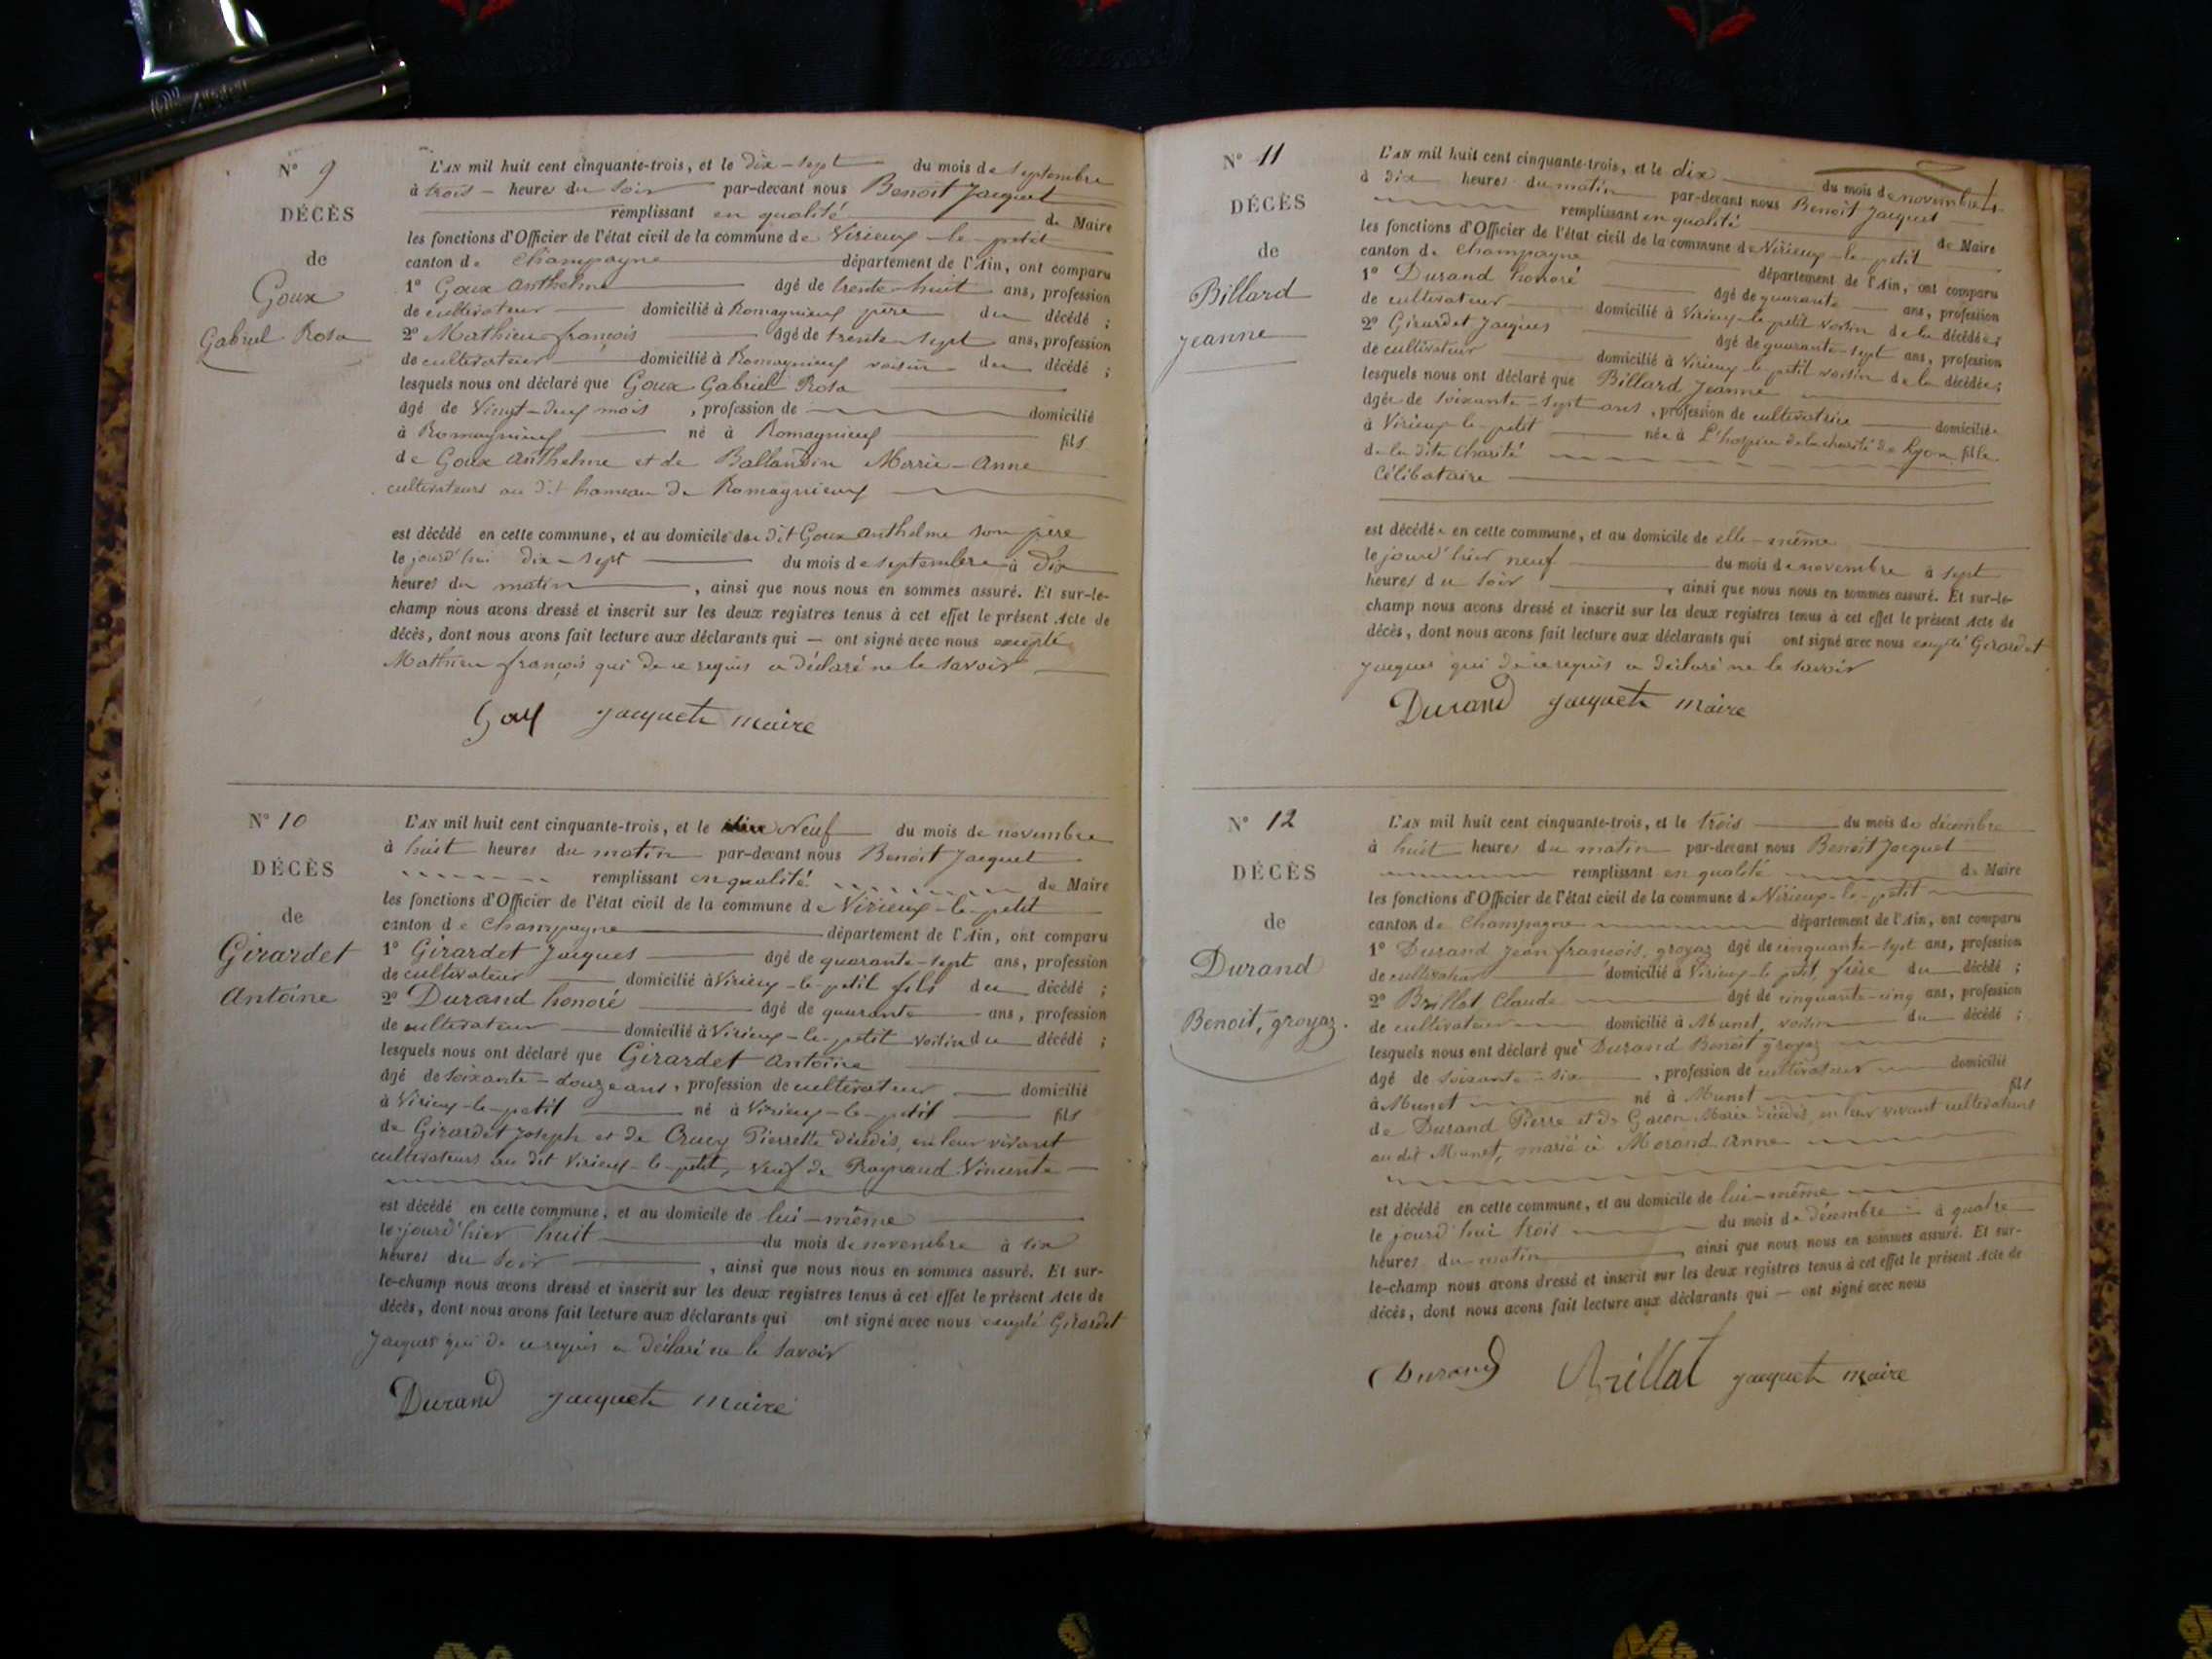 N° 9
DÉCÈS
de
Goux
Gabriel Rosa
L'AN mil huit cent cinquante-trois, et le dix-sept du mois de septembre
à trois heures du soir par-devant nous Benoît Jacquet
remplissant en qualité de Maire
les fonctions d'Officier de l'état civil de la commune de Virieux-le-petit
canton de Champagne département de l'Ain, ont comparu
1° Goux Anthelme âgé de trente-huit ans, profession
de cultivateur domicilié à Romagnieux père du décédé ;
2° Mathieu françois âgé de trente-sept ans, profession
de cultivateur domicilié à Romagnieux voisin du décédé ;
lesquels nous ont déclaré que Goux Gabriel Rosa
âgé de Vingt-deux mois , profession de domicilié
à Romagnieux né à Romagnieux fils
de Goux Anthelme et de Ballandin Marie-Anne
cultivateurs au dit hameau de Romagnieux
est décédé en cette commune, et au domicile du dit Goux anthelme son père
le jourd'hui dix-sept du mois de septembre à dix
heures du matin , ainsi que nous nous en sommes assuré. Et sur-le-
champ nous avons dressé et inscrit sur les deux registres tenus à cet effet le présent Acte de
décès, dont nous avons fait lecture aux déclarants qui — ont signé avec nous excepté
Mathieu françois qui de ce requis a déclaré ne le savoir
Goux Jacquet maire
N° 10
DÉCÈS
de
Girardet
Antoine
L'AN mil huit cent cinquante-trois, et le Neuf du mois de novembre
à huit heures du matin par-devant nous Benoît Jacquet
remplissant en qualité de Maire
les fonctions d'Officier de l'état civil de la commune de Virieux-le-petit
canton de Champagne département de l'Ain, ont comparu
1° Girardet Jacques âgé de quarante-sept ans, profession
de cultivateur domicilié à Virieux-le-petit fils du décédé ;
2° Durand honoré âgé de quarante ans, profession
de cultivateur domicilié à Virieux-le-petit voisin du décédé ;
lesquels nous ont déclaré que Girardet Antoine
âgé de soixante-douze ans, profession de cultivateur domicilié
à Virieux-le-petit né à Virieux-le-petit fils
de Girardet Joseph et de Pierrette décédés, en leur vivant
cultivateurs au dit Virieux-le-petit, veuf de Raynaud Vincente
est décédé en cette commune, et au domicile de lui-même
le jourd'hier huit du mois de novembre à six
heures du soir , ainsi que nous nous en sommes assuré. Et sur-
le-champ nous avons dressé et inscrit sur les deux registres tenus à cet effet le présent Acte de
décès, dont nous avons fait lecture aux déclarants qui ont signé avec nous excepté Girardet
Jacques qui de ce requis a déclaré ne le savoir
Durand Jacquet maire
N° 11
DÉCÈS
de
Billard
Jeanne
L'AN mil huit cent cinquante-trois, et le dix du mois de novembre
à dix heures du matin par-devant nous Benoît Jacquet
remplissant en qualité de Maire
les fonctions d'Officier de l'état civil de la commune de Virieux-le-petit
canton de Champagne département de l'Ain, ont comparu
1° Durand honoré âgé de quarante ans, profession
de cultivateur domicilié à Virieux-le-petit voisin de la décédée ;
2° Girardet Jacques âgé de quarante-sept ans, profession
de cultivateur domicilié à Virieux-le-petit voisin de la décédée ;
lesquels nous ont déclaré que Billard Jeanne
âgée de soixante-sept ans, profession de cultivatrice domiciliée
à Virieux-le-petit née à L'hospice de la charité de Lyon fille
de la dite Charité
Célibataire
est décédée en cette commune, et au domicile de elle-même
le jourd'hier neuf du mois de novembre à sept
heures du soir , ainsi que nous nous en sommes assuré. Et sur-le-
champ nous avons dressé et inscrit sur les deux registres tenus à cet effet le présent Acte de
décès, dont nous avons fait lecture aux déclarants qui ont signé avec nous excepté Girardet
Jacques qui de ce requis a déclaré ne le savoir
Durand Jacquet maire
N° 12
DÉCÈS
de
Durand
Benoit, groyaz.
L'AN mil huit cent cinquante-trois, et le trois du mois de décembre
à huit heures du matin par-devant nous Benoît Jacquet
remplissant en qualité de Maire
les fonctions d'Officier de l'état civil de la commune de Virieux-le-petit
canton de Champagne département de l'Ain, ont comparu
1° Durand Jean françois, groyaz âgé de cinquante-sept ans, profession
de cultivateur domicilié à Virieux-le-petit, frère du décédé ;
2° Brillat Claude âgé de cinquante-cinq ans, profession
de cultivateur domicilié à Munet, voisin du décédé ;
lesquels nous ont déclaré que Durand Benoît groyaz
âgé de soixante-six , profession de cultivateur domicilié
à Munet né à Munet fils
de Durand Pierre et de Marie décédés, en leur vivant cultivateurs
au dit Munet, marié à Morand Anne
est décédé en cette commune, et au domicile de lui-même
le jourd'hui trois du mois de décembre à quatre
heures du matin , ainsi que nous nous en sommes assuré. Et sur-
le-champ nous avons dressé et inscrit sur les deux registres tenus à cet effet le présent Acte de
décès, dont nous avons fait lecture aux déclarants qui — ont signé avec nous
Durand Brillat Jacquet maire